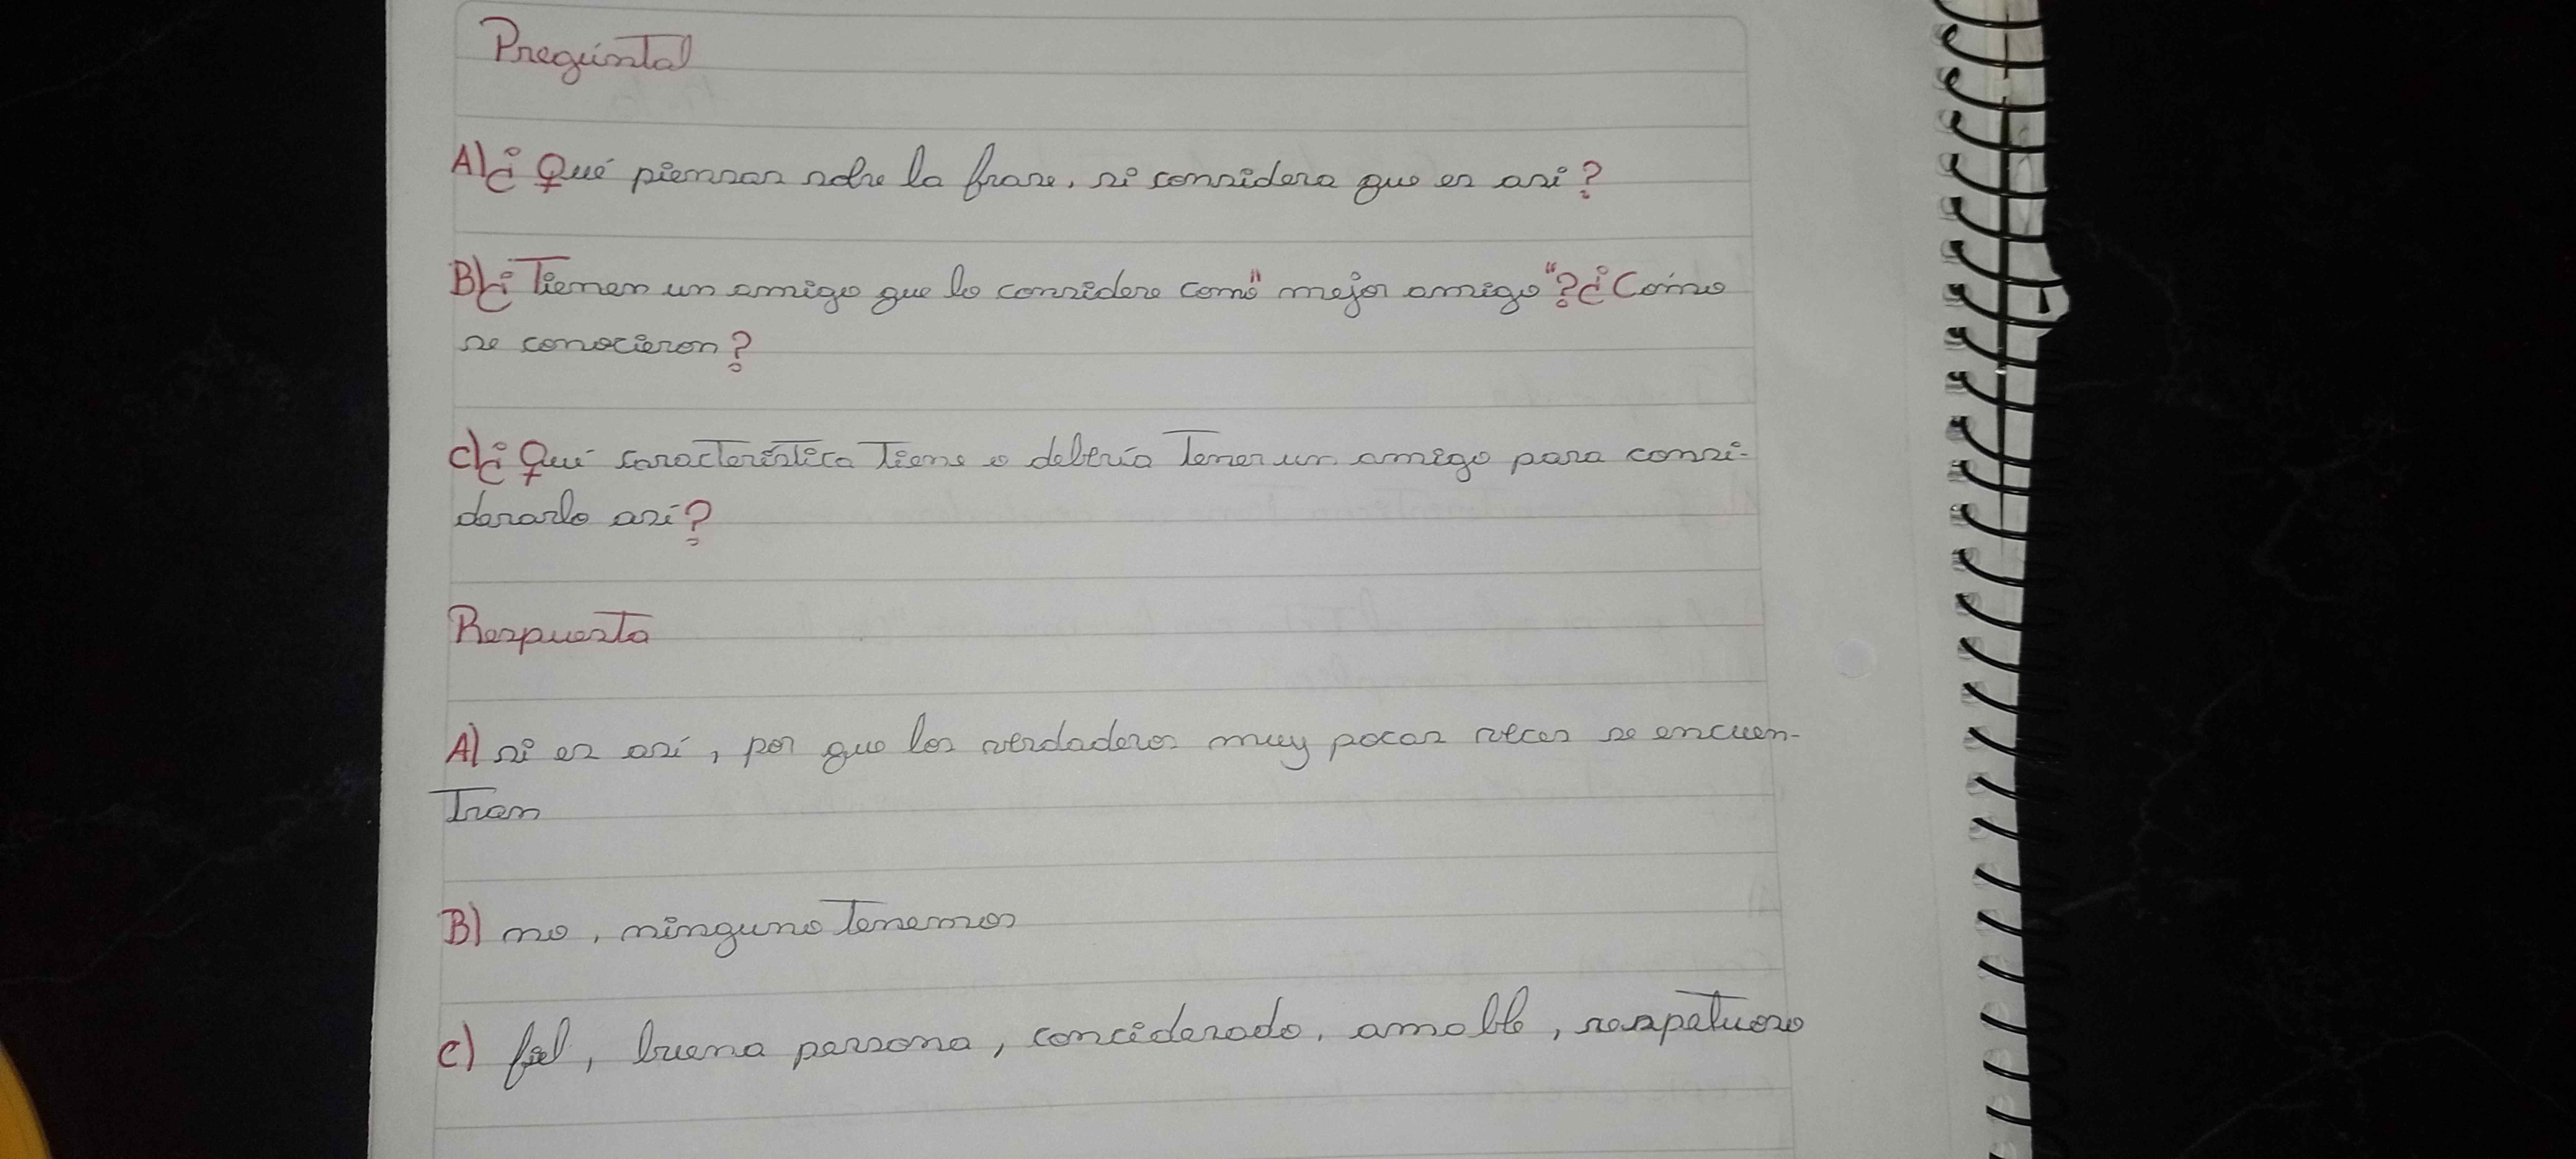 Pregunta
A) ¿Qué piensas sobre la frase, si considera que es asi?
B) ¿Tienen un amigo que lo considere como "mejor amigo"? ¿Cómo
se conocieron?
C) ¿Qué característica tiene o debería tener un amigo para consi-
derarlo así?
Respuesta
A) si es así, por que los verdaderos muy pocas veces se encuen-
tran
B) no, ninguno tenemos
C) fiel, buena persona, conciderado, amable, respetuoso